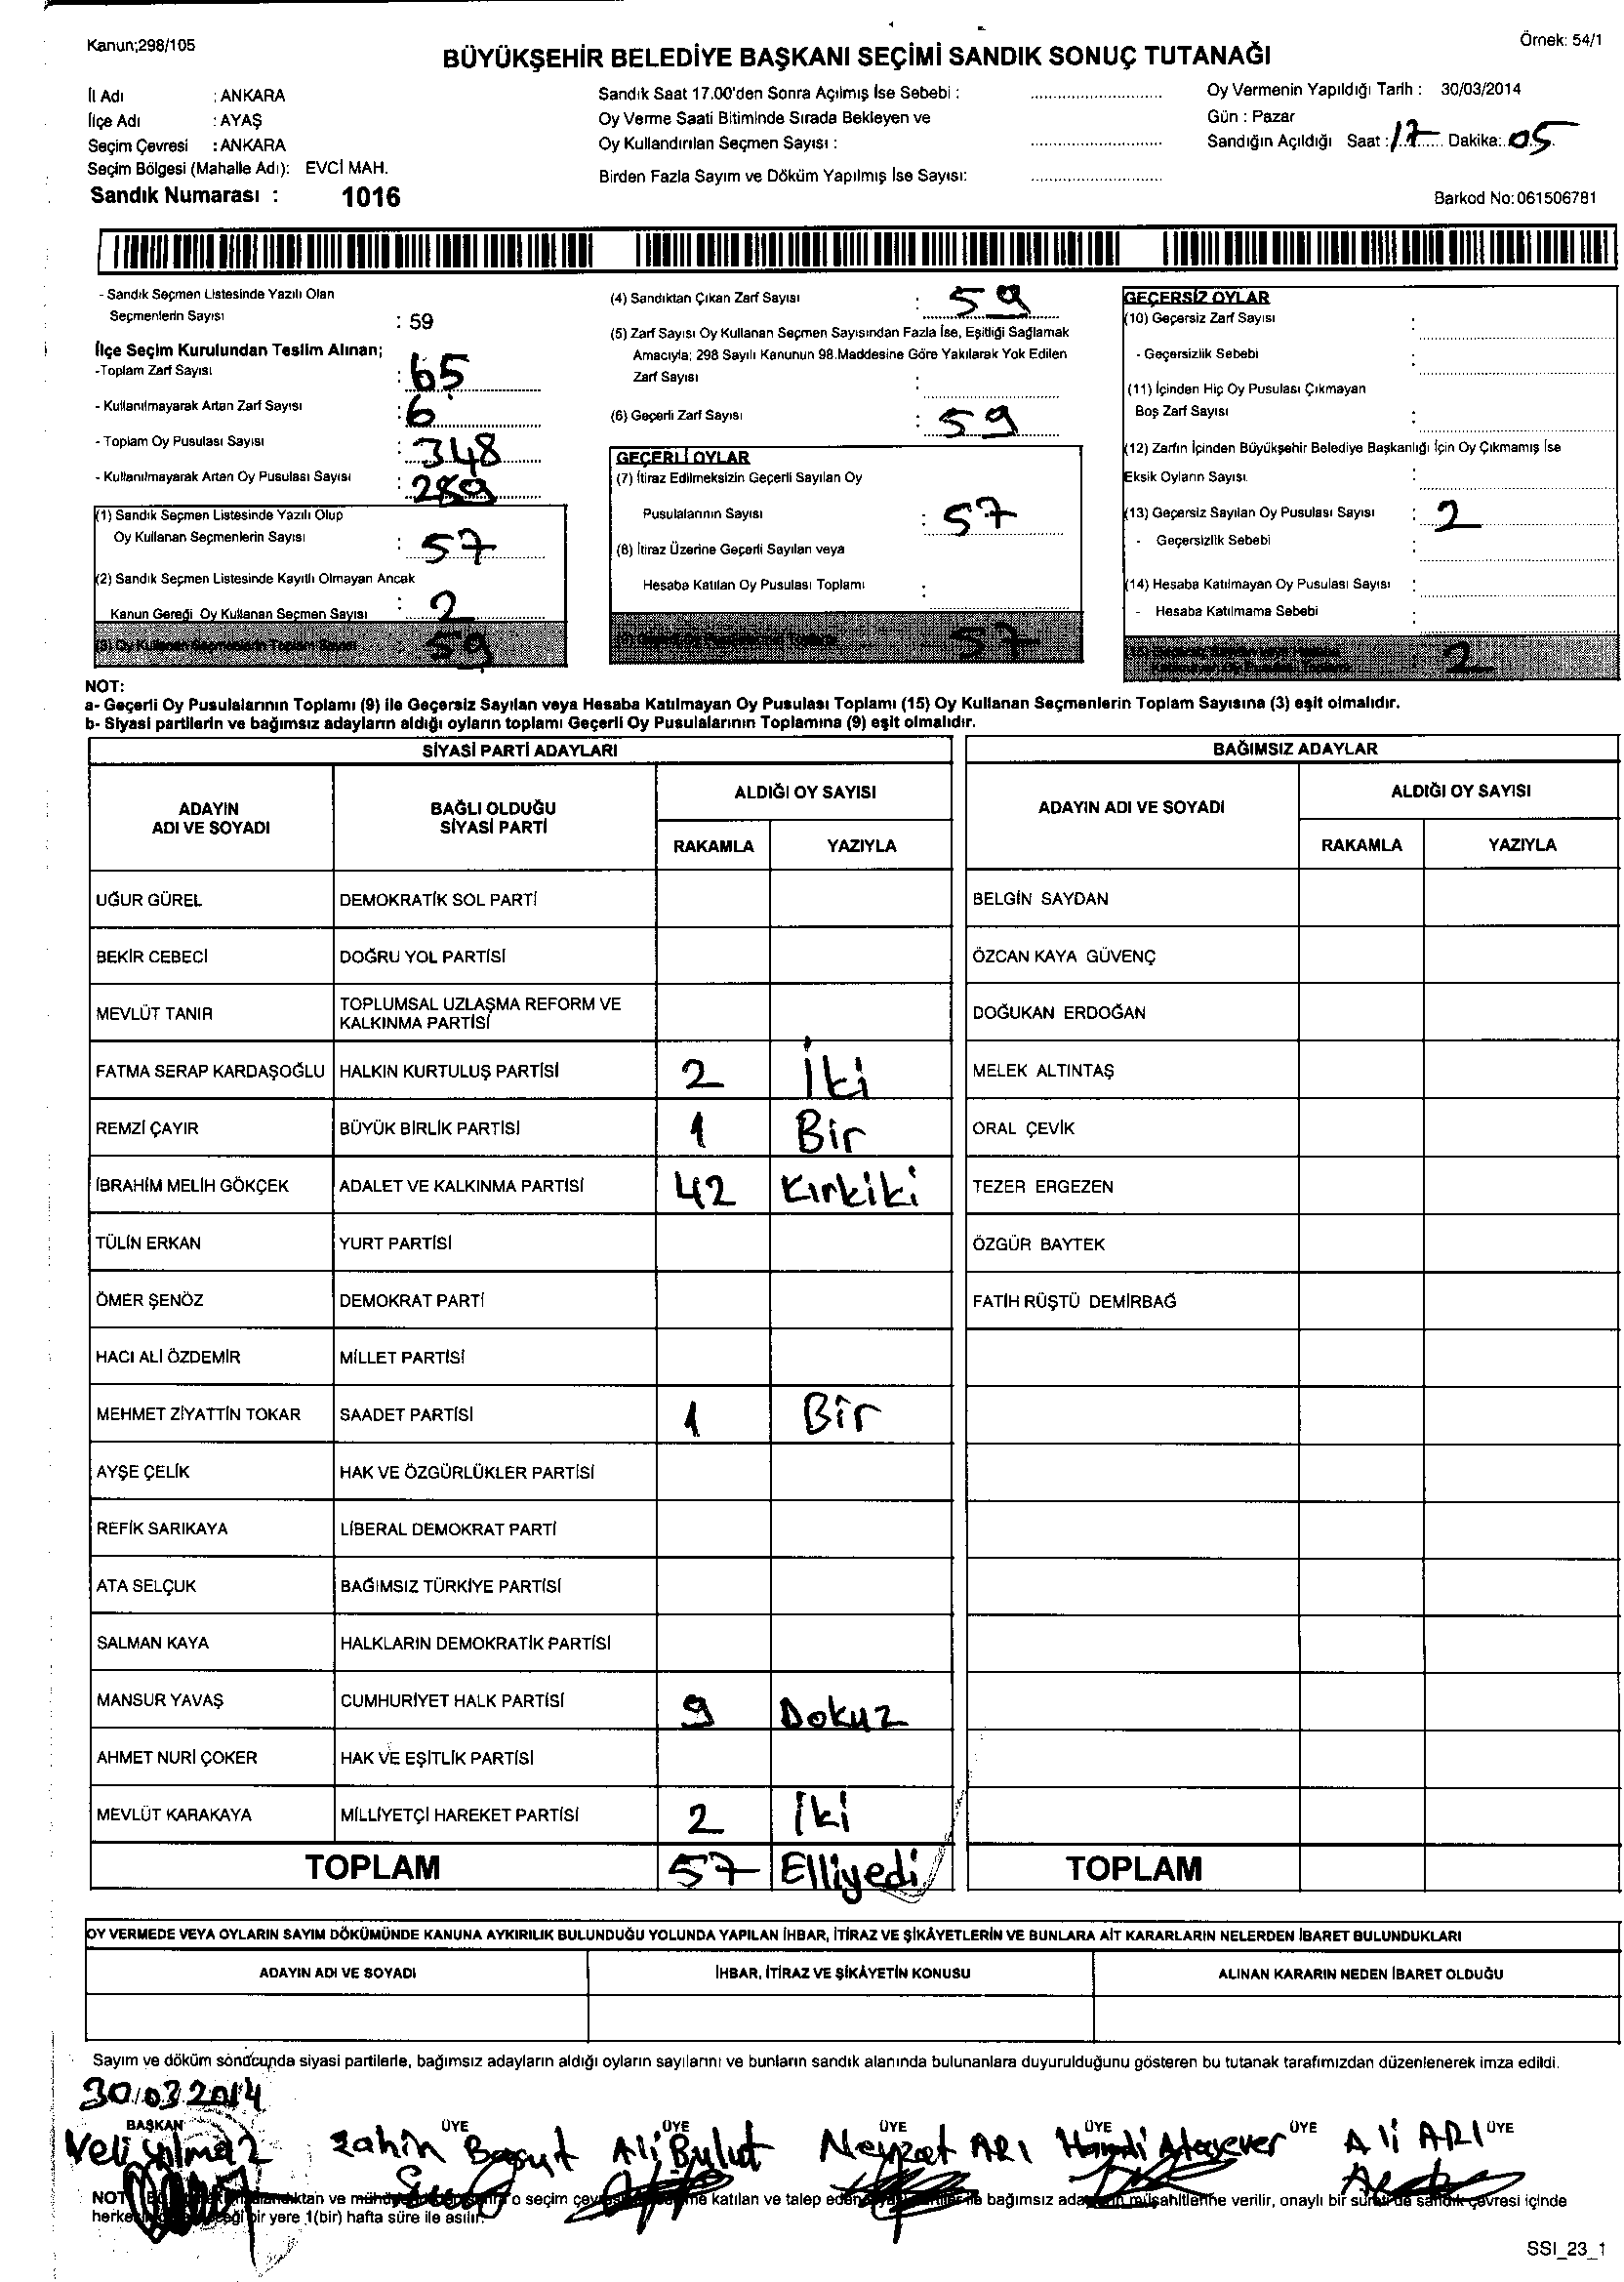 Kanun;298/105
Örnek: 54/1
BÜYÜKŞEHİR BELEDİYE BAŞKANI SEÇİMİ SANDIK SONUÇ TUTANAĞI
İl Adı : ANKARA
İlçe Adı : AYAŞ
Seçim Çevresi : ANKARA
Seçim Bölgesi (Mahalle Adı): EVCİ MAH.
Sandık Numarası : 1016
Sandık Saat 17.00'den Sonra Açılmış İse Sebebi :
Oy Verme Saati Bitiminde Sırada Bekleyen ve
Oy Kullandırılan Seçmen Sayısı :
Birden Fazla Sayım ve Döküm Yapılmış İse Sayısı:
Oy Vermenin Yapıldığı Tarih : 30/03/2014
Gün : Pazar
Sandığın Açıldığı Saat : 17 Dakika: 05
Barkod No:061506781
- Sandık Seçmen Listesinde Yazılı Olan
Seçmenlerin Sayısı : 59
İlçe Seçim Kurulundan Teslim Alınan;
-Toplam Zarf Sayısı : 65
- Kullanılmayarak Artan Zarf Sayısı : 6
- Toplam Oy Pusulası Sayısı : 348
- Kullanılmayarak Artan Oy Pusulası Sayısı : 289
(1) Sandık Seçmen Listesinde Yazılı Olup
Oy Kullanan Seçmenlerin Sayısı : 57
(2) Sandık Seçmen Listesinde Kayıtlı Olmayan Ancak
Kanun Gereği Oy Kullanan Seçmen Sayısı : 2
(3) Oy Kullanan Seçmenlerin Toplam Sayısı : 59
(4) Sandıktan Çıkan Zarf Sayısı : 59
(5) Zarf Sayısı Oy Kullanan Seçmen Sayısından Fazla İse, Eşitliği Sağlamak
Amacıyla; 298 Sayılı Kanunun 98.Maddesine Göre Yakılarak Yok Edilen
Zarf Sayısı :
(6) Geçerli Zarf Sayısı : 59
GEÇERLİ OYLAR
(7) İtiraz Edilmeksizin Geçerli Sayılan Oy
Pusulalarının Sayısı : 57
(8) İtiraz Üzerine Geçerli Sayılan veya
Hesaba Katılan Oy Pusulası Toplamı :
(9) Geçerli Oy Pusulalarının Toplamı : 57
GEÇERSİZ OYLAR
(10) Geçersiz Zarf Sayısı :
- Geçersizlik Sebebi :
(11) İçinden Hiç Oy Pusulası Çıkmayan
Boş Zarf Sayısı :
(12) Zarfın İçinden Büyükşehir Belediye Başkanlığı İçin Oy Çıkmamış İse
Eksik Oyların Sayısı. :
(13) Geçersiz Sayılan Oy Pusulası Sayısı : 2
- Geçersizlik Sebebi :
(14) Hesaba Katılmayan Oy Pusulası Sayısı :
- Hesaba Katılmama Sebebi :
Oy Pusulası Toplamı : 2
NOT:
a- Geçerli Oy Pusulalarının Toplamı (9) ile Geçersiz Sayılan veya Hesaba Katılmayan Oy Pusulası Toplamı (15) Oy Kullanan Seçmenlerin Toplam Sayısına (3) eşit olmalıdır.
b- Siyasi partilerin ve bağımsız adayların aldığı oyların toplamı Geçerli Oy Pusulalarının Toplamına (9) eşit olmalıdır.
SİYASİ PARTİ ADAYLARI
ADAYIN ADI VE SOYADI
BAĞLI OLDUĞU SİYASİ PARTİ
ALDIĞI OY SAYISI
RAKAMLA YAZIYLA
UĞUR GÜREL DEMOKRATİK SOL PARTİ
BEKİR CEBECİ DOĞRU YOL PARTİSİ
MEVLÜT TANIR TOPLUMSAL UZLAŞMA REFORM VE
KALKINMA PARTİSİ
FATMA SERAP KARDAŞOĞLU HALKIN KURTULUŞ PARTİSİ 2 İki
REMZİ ÇAYIR BÜYÜK BİRLİK PARTİSİ 1 Bir
İBRAHİM MELİH GÖKÇEK ADALET VE KALKINMA PARTİSİ 42 Kırkiki
TÜLİN ERKAN YURT PARTİSİ
ÖMER ŞENÖZ DEMOKRAT PARTİ
HACI ALİ ÖZDEMİR MİLLET PARTİSİ
MEHMET ZİYATTİN TOKAR SAADET PARTİSİ 1 Bir
AYŞE ÇELİK HAK VE ÖZGÜRLÜKLER PARTİSİ
REFİK SARIKAYA LİBERAL DEMOKRAT PARTİ
ATA SELÇUK BAĞIMSIZ TÜRKİYE PARTİSİ
SALMAN KAYA HALKLARIN DEMOKRATİK PARTİSİ
MANSUR YAVAŞ CUMHURİYET HALK PARTİSİ 9 Dokuz
AHMET NURİ ÇOKER HAK VE EŞİTLİK PARTİSİ
MEVLÜT KARAKAYA MİLLİYETÇİ HAREKET PARTİSİ 2 İki
TOPLAM 57 Elliyedi
BAĞIMSIZ ADAYLAR
ADAYIN ADI VE SOYADI
ALDIĞI OY SAYISI
RAKAMLA YAZIYLA
BELGİN SAYDAN
ÖZCAN KAYA GÜVENÇ
DOĞUKAN ERDOĞAN
MELEK ALTINTAŞ
ORAL ÇEVİK
TEZER ERGEZEN
ÖZGÜR BAYTEK
FATİH RÜŞTÜ DEMİRBAĞ
TOPLAM
OY VERMEDE VEYA OYLARIN SAYIM DÖKÜMÜNDE KANUNA AYKIRILIK BULUNDUĞU YOLUNDA YAPILAN İHBAR, İTİRAZ VE ŞİKÂYETLERİN VE BUNLARA AİT KARARLARIN NELERDEN İBARET BULUNDUKLARI
ADAYIN ADI VE SOYADI İHBAR, İTİRAZ VE ŞİKÂYETİN KONUSU ALINAN KARARIN NEDEN İBARET OLDUĞU
Sayım ve döküm sonucunda siyasi partilerle, bağımsız adayların aldığı oyların sayılarını ve bunların sandık alanında bulunanlara duyurulduğunu gösteren bu tutanak tarafımızdan düzenlenerek imza edildi.
30.03.2014
BAŞKAN ÜYE ÜYE ÜYE ÜYE ÜYE ÜYE
Veli Yılmaz Ali Bulut ARI Hamdi Ali ARI
NOT ve o seçim katılan ve talep eden bağımsız müşahitlerine verilir, onaylı bir sureti de sandık çevresi içinde
bir yere 1(bir) hafta süre ile asılır.
SSI_23_1